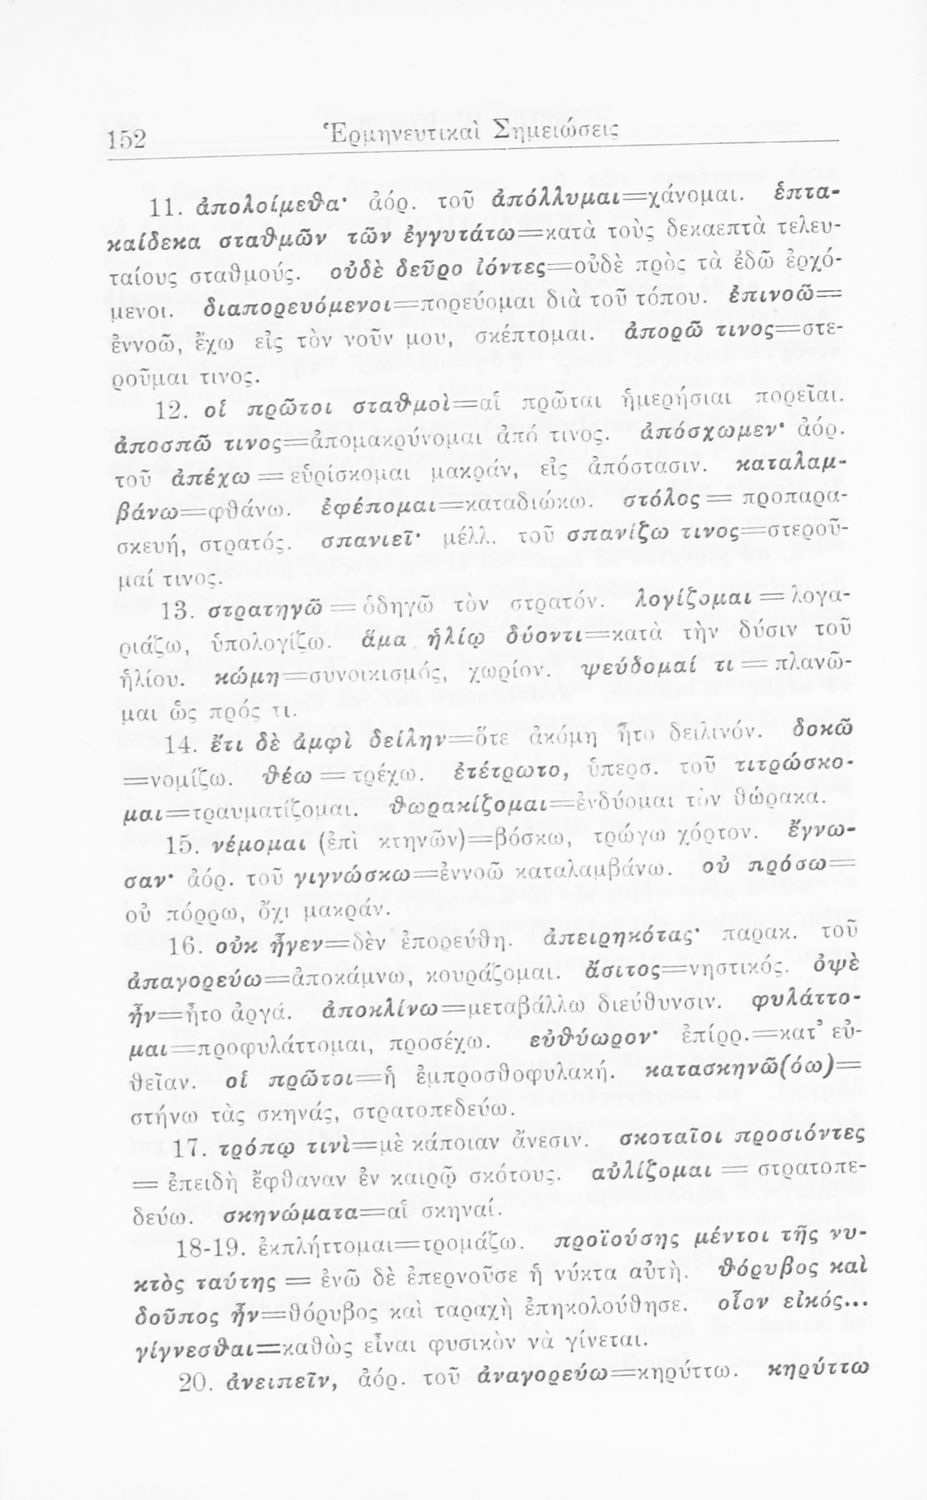 152
Ἑρμηνευτικαὶ Σημειώσεις
11. ἀπολοίμεθα· ἀόρ. τοῦ ἀπόλλυμαι=χάνομαι. ἑπτα-
καίδεκα σταθμῶν τῶν ἐγγυτάτω=κατὰ τοὺς δεκαεπτὰ τελευ-
ταίους σταθμούς. οὐδὲ δεῦρο ἰόντες=οὐδὲ πρὸς τὰ ἐδῶ ἐρχό-
μενοι. διαπορευόμενοι=πορεύομαι διὰ τοῦ τόπου. ἐπινοῶ=
ἐννοῶ, ἔχω εἰς τὸν νοῦν μου, σκέπτομαι. ἀπορῶ τινος=στε-
ροῦμαι τινος.
12. οἱ πρῶτοι σταθμοὶ=αἱ πρῶται ἡμερήσιαι πορεῖαι.
ἀποσπῶ τινος=ἀπομακρύνομαι ἀπό τινος. ἀπόσχωμεν· ἀόρ.
τοῦ ἀπέχω = εὑρίσκομαι μακράν, εἰς ἀπόστασιν. καταλαμ-
βάνω=φθάνω. ἐφέπομαι=καταδιώκω. στόλος = προπαρα-
σκευή, στρατός. σπανιεῖ· μέλλ. τοῦ σπανίζω τινος=στεροῦ-
μαί τινος.
13. στρατηγῶ = ὁδηγῶ τὸν στρατόν. λογίζομαι = λογα-
ριάζω, ὑπολογίζω. ἅμα ἡλίῳ δύοντι=κατὰ τὴν δύσιν τοῦ
ἡλίου. κώμη=συνοικισμός, χωρίον. ψεύδομαί τι = πλανῶ-
μαι ὡς πρός τι.
14. ἔτι δὲ ἀμφὶ δείλην=ὅτε ἀκόμη ἦτο δειλινόν. δοκῶ
=νομίζω. θέω = τρέχω. ἐτέτρωτο, ὑπερσ. τοῦ τιτρώσκο-
μαι=τραυματίζομαι. θωρακίζομαι=ἐνδύομαι τὸν θώρακα.
15. νέμομαι (ἐπὶ κτηνῶν)=βόσκω, τρώγω χόρτον. ἔγνω-
σαν· ἀόρ. τοῦ γιγνώσκω=ἐννοῶ καταλαμβάνω. οὐ πρόσω=
οὐ πόρρω, ὄχι μακράν.
16. οὐκ ἦγεν=δὲν ἐπορεύθη. ἀπειρηκότας· παρακ. τοῦ
ἀπαγορεύω=ἀποκάμνω, κουράζομαι. ἄσιτος=νηστικός. ὀψὲ
ἦν=ἦτο ἀργά. ἀποκλίνω=μεταβάλλω διεύθυνσιν. φυλάττο-
μαι=προφυλάττομαι, προσέχω. εὐθύωρον· ἐπίρρ.=κατ᾽ εὐ-
θεῖαν. οἱ πρῶτοι=ἡ ἐμπροσθοφυλακή. κατασκηνῶ(όω)=
στήνω τὰς σκηνάς, στρατοπεδεύω.
17. τρόπῳ τινὶ=μὲ κάποιαν ἄνεσιν. σκοταῖοι προσιόντες
= ἐπειδὴ ἔφθαναν ἐν καιρῷ σκότους. αὐλίζομαι = στρατοπε-
δεύω. σκηνώματα=αἱ σκηναί.
18-19. ἐκπλήττομαι=τρομάζω. προϊούσης μέντοι τῆς νυ-
κτὸς ταύτης = ἐνῶ δὲ ἐπερνοῦσε ἡ νύκτα αὐτή. θόρυβος καὶ
δοῦπος ἦν=θόρυβος καὶ ταραχὴ ἐπηκολούθησε. οἷον εἰκός...
γίγνεσθαι=καθὼς εἶναι φυσικὸν νὰ γίνεται.
20. ἀνειπεῖν, ἀόρ. τοῦ ἀναγορεύω=κηρύττω. κηρύττω